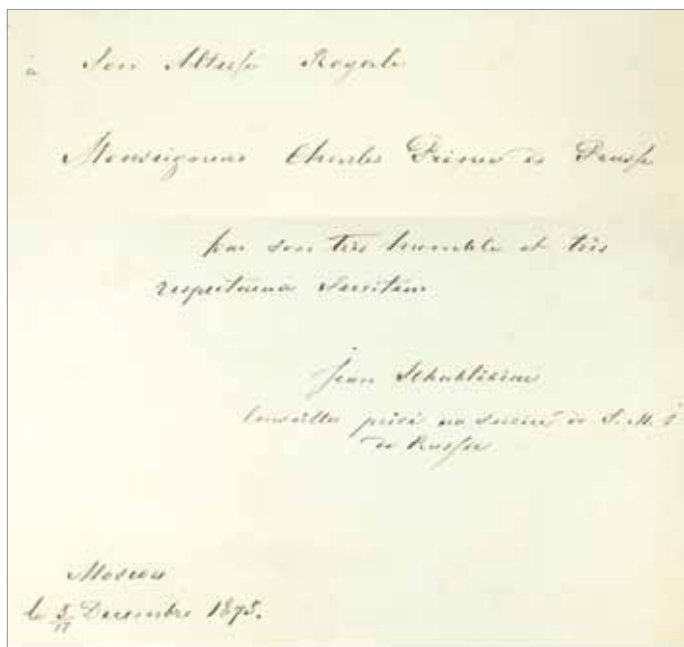 à Son Altesse Royale
Monseigneur Charles Prince de Prusse
par son très humble et très
respectueux Serviteur
Jean
Conseiller privé au service de S. M. I
de Russie
Moscou
le 5/17 Decembre 1873.